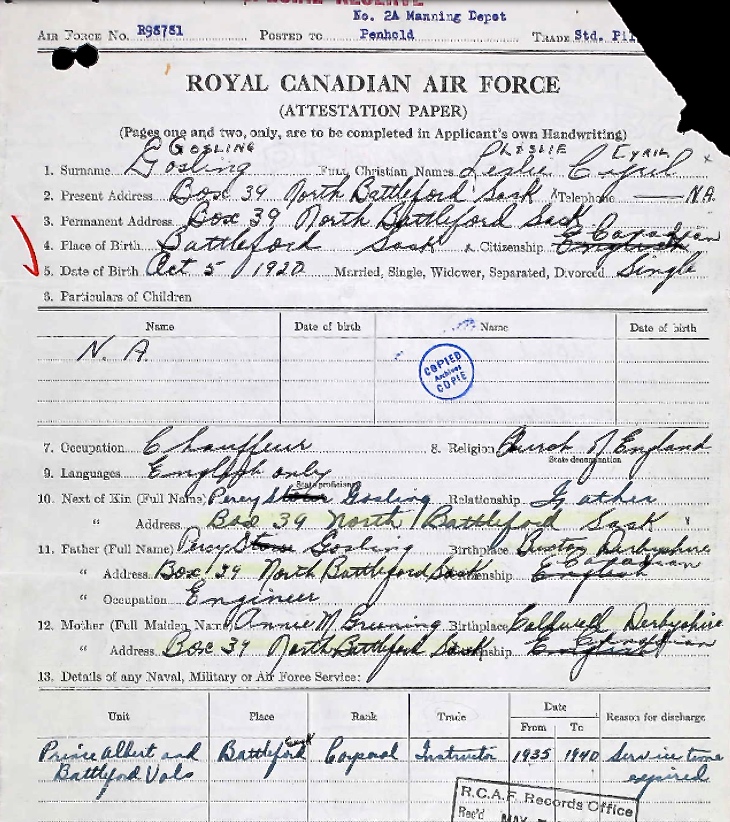 SPECIAL RESERVE
No. 2A Manning Depot
AIR FORCE NO. R98751 POSTED TO Penhold TRADE Std. Pil
ROYAL CANADIAN AIR FORCE
(ATTESTATION PAPER)
(Pages one and two, only, are to be completed in Applicant's own Handwriting)
GOSLING LESLIE CYRIL
1. Surname Gosling Full Christian Names Leslie Cyril
2. Present Address Box 39 North Battleford Sask Telephone N.A.
3. Permanent Address Box 39 North Battleford Sask
4. Place of Birth Battleford Sask Citizenship English Canadian
5. Date of Birth Oct 5 1920 Married, Single, Widower, Separated, Divorced Single
6. Particulars of Children
Name Date of birth Name Date of birth
N. A.
COPIED
Archives
COPIE
7. Occupation Chauffeur 8. Religion Church of England
State denomination
9. Languages English only
State proficiency
10. Next of Kin (Full Name) Percy Gosling Relationship Father
" Address Box 39 North Battleford Sask
11. Father (Full Name) Percy Gosling Birthplace Buxton Derbyshire
" Address Box 39 North Battleford Sask Citizenship English Canadian
" Occupation Engineer
12. Mother (Full Maiden Name) Annie M Greening Birthplace Caldwell Derbyshire
" Address Box 39 North Battleford Sask Citizenship English Canadian
13. Details of any Naval, Military or Air Force Service:
Unit Place Rank Trade Date Reason for discharge
From To
Prince Albert and Battleford Sask Corporal Instructor 1935 1940 Service time
Battleford Vols expired
R.C.A.F. Records Office
Rec'd MAY